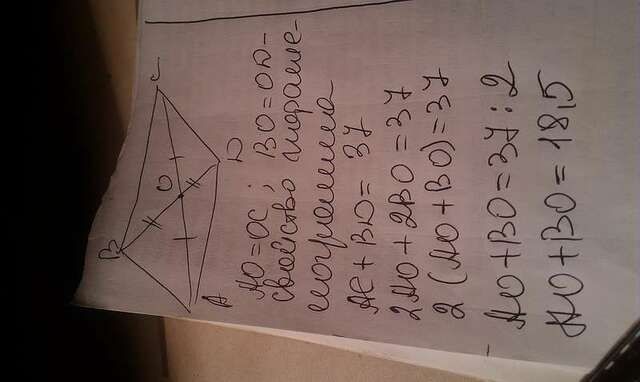 B
C
O
A
D
AO = OC; BO = OD -
свойство паралле-
лограмма
AC + BD = 37
2AO + 2BO = 37
2 (AO + BO) = 37
AO + BO = 37 : 2
AO + BO = 18,5